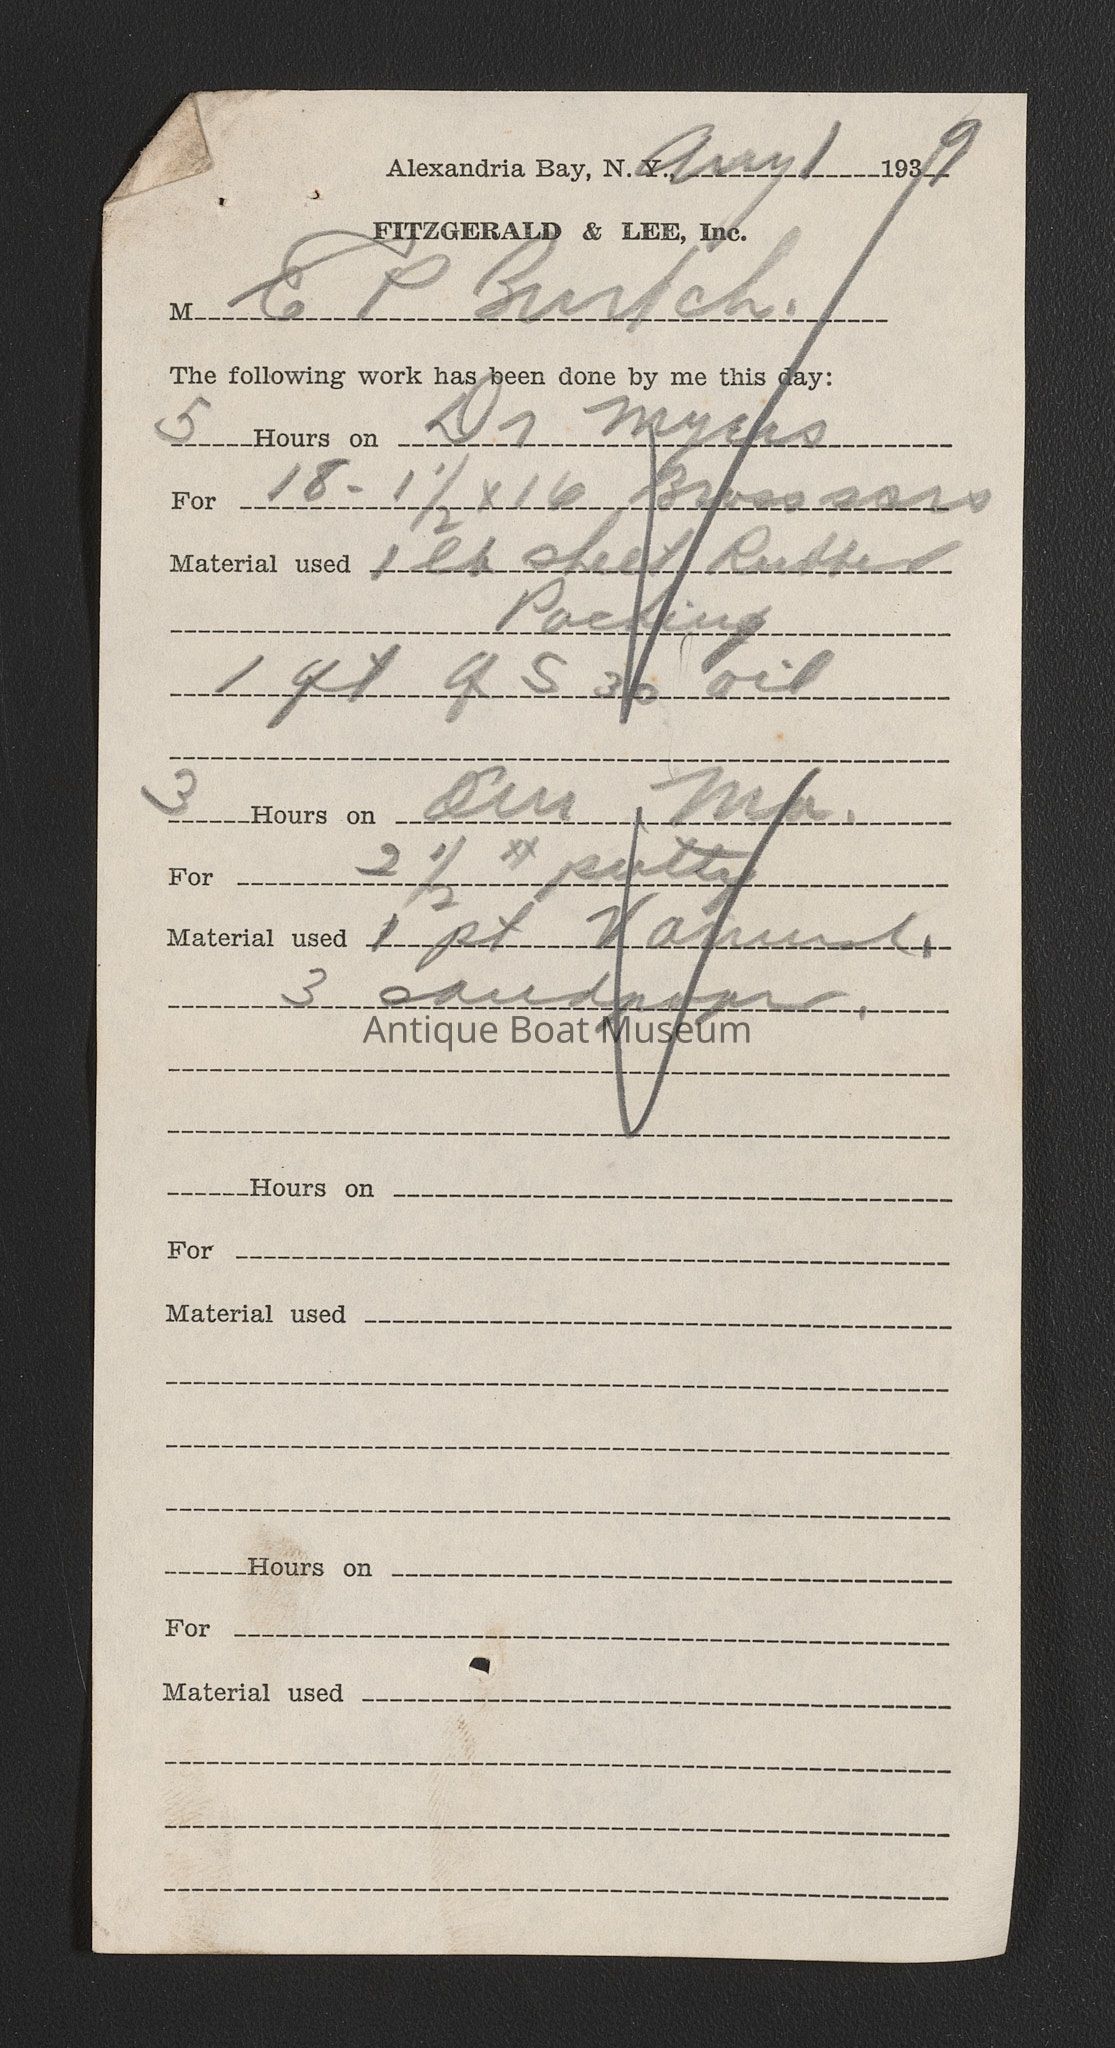 Alexandria Bay, N. Y., Aug 1 1939
FITZGERALD & LEE, Inc.
M E P Burtch.
The following work has been done by me this day:
5 Hours on Dr Myers
For 18 - 1 1/2 x 16 Brass
Material used 1 lb sheet Rubber
Packing
1 qt Q S 30 oil
3 Hours on
For 2 1/2 # putty
Material used 1 pt Varnish.
3 sandpaper.
Antique Boat Museum
Hours on
For
Material used
Hours on
For
Material used